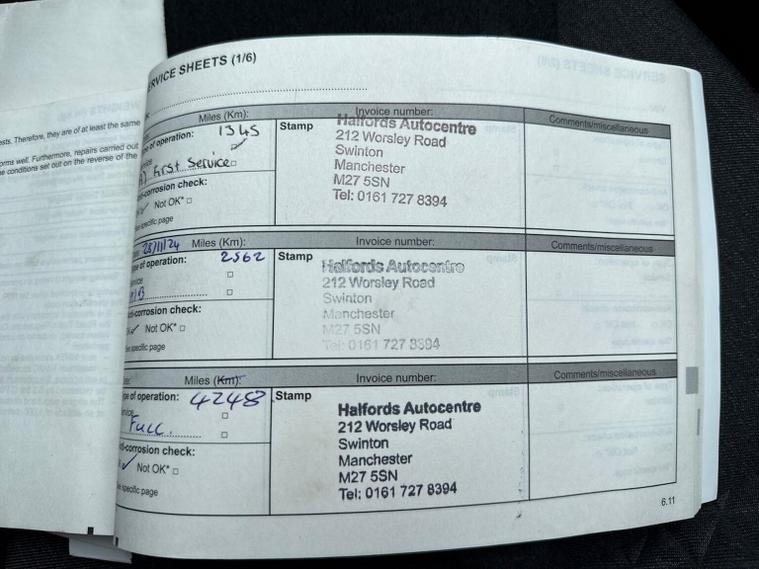 ests. Therefore, they are of at least the same
orms well. Furthermore, repairs carried out
e conditions set out on the reverse of the
ERVICE SHEETS (1/6)
Miles (Km): Invoice number: Comments/miscellaneous
pe of operation: 1345 Stamp
Halfords Autocentre
212 Worsley Road
Swinton
Manchester
M27 5SN
Tel: 0161 727 8394
First Service
i-corrosion check:
Not OK* □
ee specific page
28/11/24 Miles (Km): Invoice number: Comments/miscellaneous
pe of operation: 2562 Stamp
Halfords Autocentre
212 Worsley Road
Swinton
Manchester
M27 5SN
Tel: 0161 727 8394
ti-corrosion check:
Not OK* □
ee specific page
Miles (Km): Invoice number: Comments/miscellaneous
pe of operation: 4248 Stamp
Halfords Autocentre
212 Worsley Road
Swinton
Manchester
M27 5SN
Tel: 0161 727 8394
Full
ti-corrosion check:
Not OK* □
ee specific page
6.11